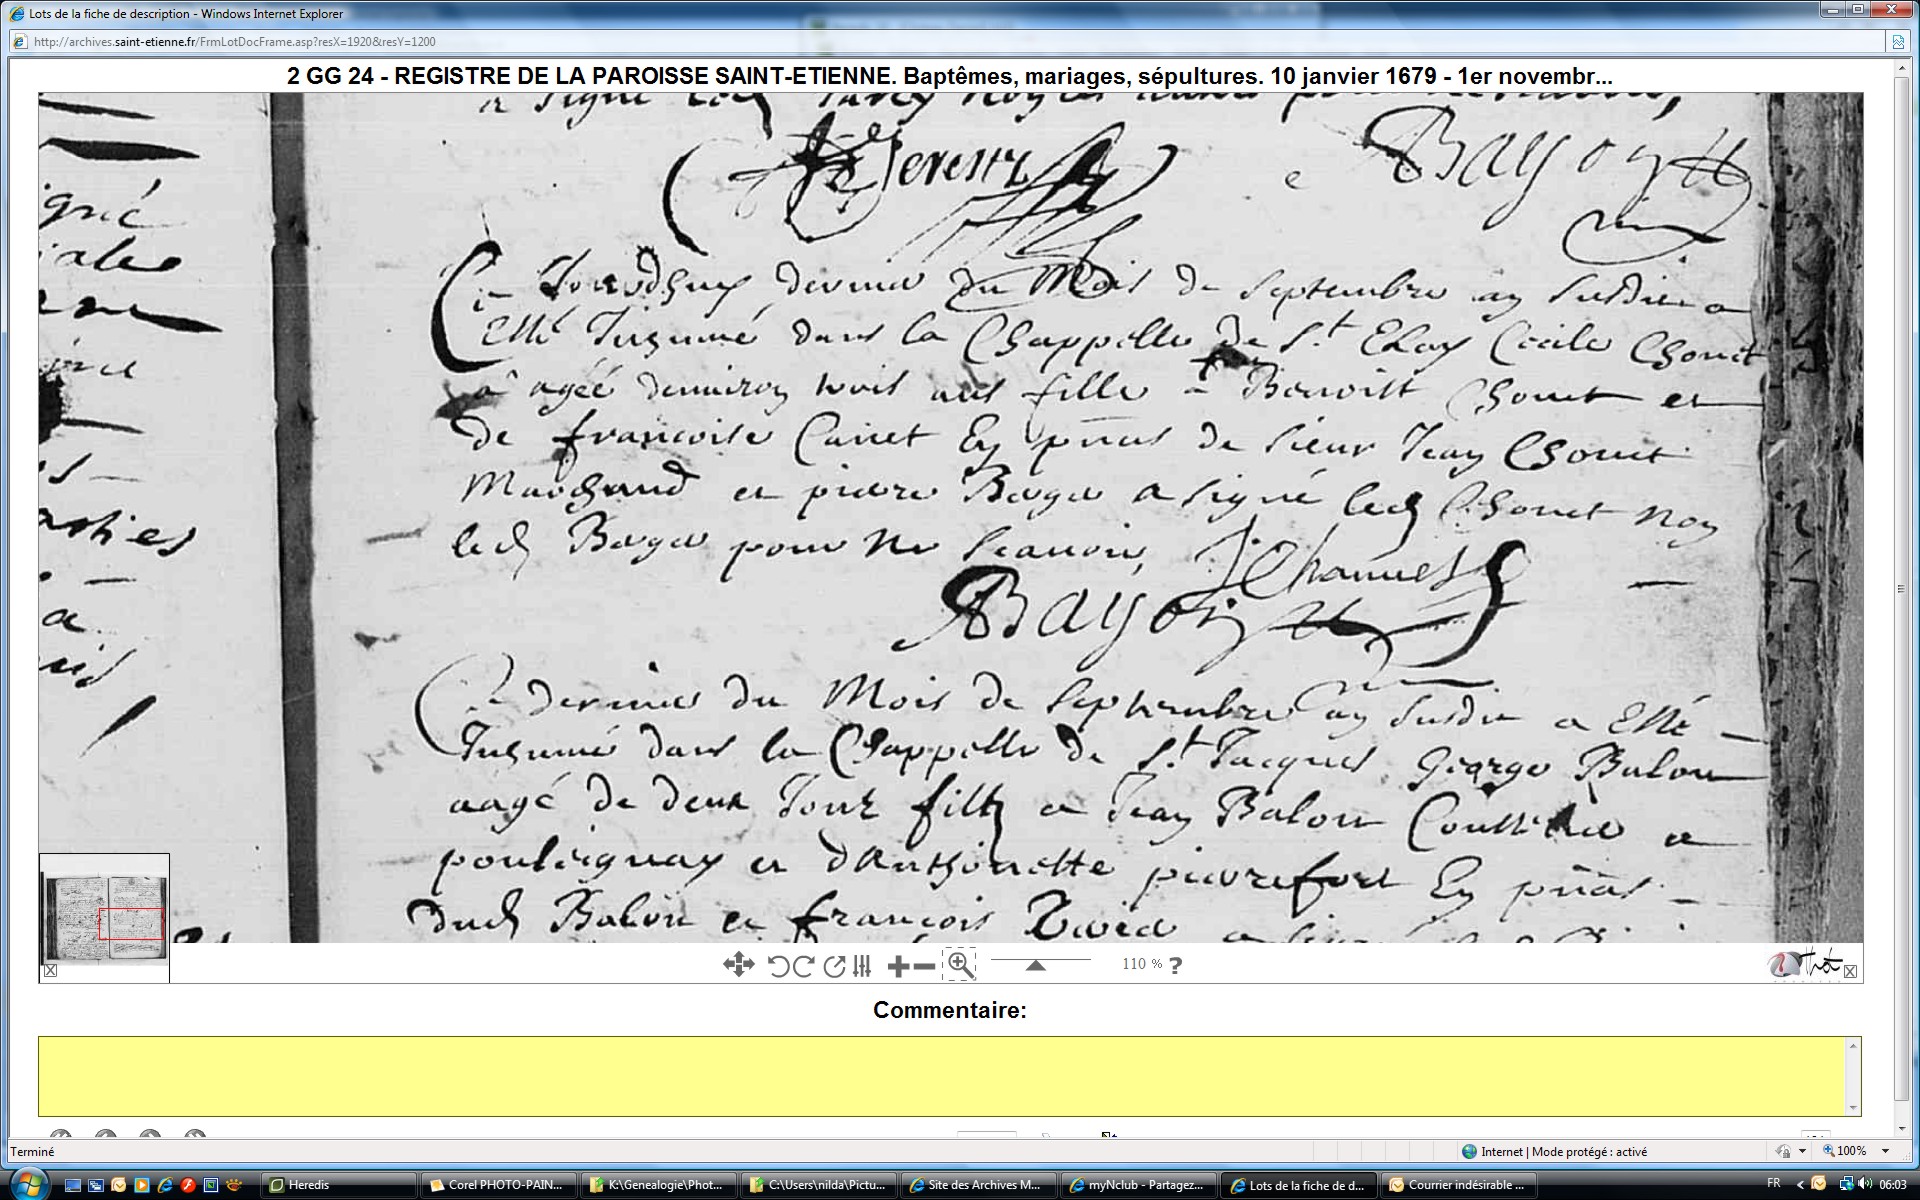 Lots de la fiche de description - Windows Internet Explorer
http://archives.saint-etienne.fr/FrmLotDocFrame.asp?resX=1920&resY=1200
2 GG 24 - REGISTRE DE LA PAROISSE SAINT-ETIENNE. Baptêmes, mariages, sépultures. 10 janvier 1679 - 1er novembr...
Bayon
Ce Jourdhuy dernier du Mois de septembre an susdit a
Esté Inhumé dans la Chappelle de St Eloy Cecile Chovet
agéé denviron trois ans fille a Benoist Chovet et
de francoise Carret En pñas de sieur Jean Chovet
Marchand et pierre Berger a signé led Chovet Non
led Berger pour ne scavoir,
J Chauvet
Bayon
Ce dernier du Mois de septembre an susdit a Esté
Inhumé dans la Chappelle de St Jacques George Balou
aagé de deux Jour filz a Jean Balou Coustellier a
poulaignay et dAnthoinette pierrefort En pñas
dud Balou et francois
110 % ?
Commentaire:
Terminé
Internet | Mode protégé : activé
100%
Heredis
Corel PHOTO-PAIN...
K:\Genealogie\Phot...
C:\Users\nilda\Pictu...
Site des Archives M...
myNclub - Partagez...
Lots de la fiche de d...
Courrier indésirable ...
FR
06:03